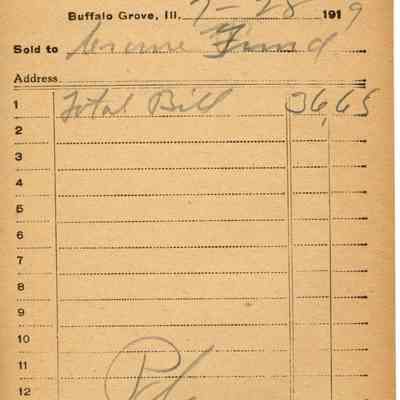 Buffalo Grove, Ill. 7-28 1919
Sold to
Address
1 Total Bill 36,65
2
3
4
5
6
7
8
9
10
11
12